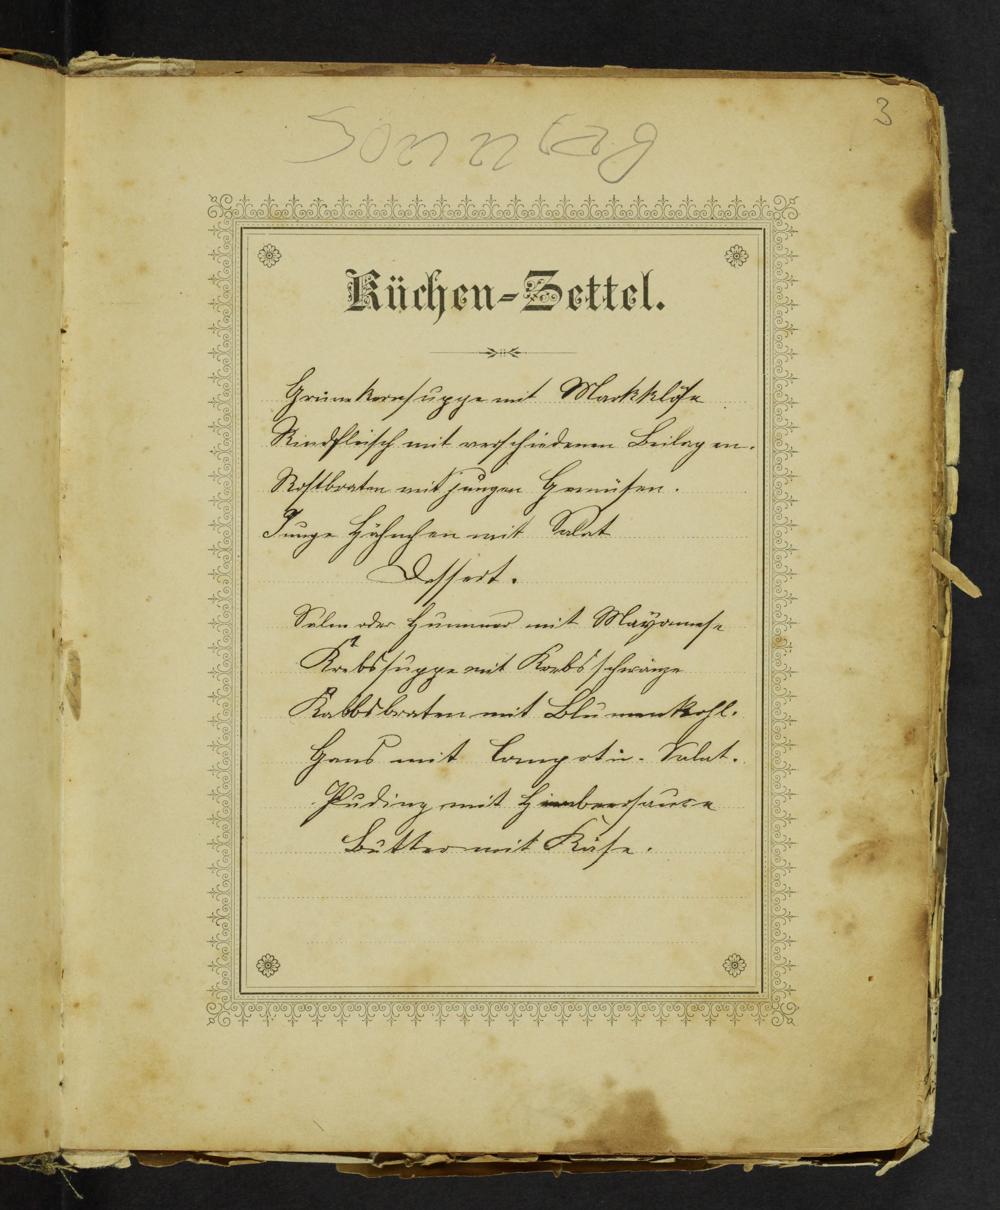 3
Sonntag
Küchen-Zettel.
Grünekernsuppe mit Markklöse
Rindfleisch mit verschiedenen Beilagen.
Rostbraten mit jungen Gemüsen.
Junge Hähnchen mit Salat
Dessert.
Salm oder Hummer mit Mayonnese
Krebssuppe mit Krebsschwänze
Kalbsbraten mit Blumenkohl.
Gans mit Compot u. Salat.
Puding mit Himbeersauce
Butter mit Käse.